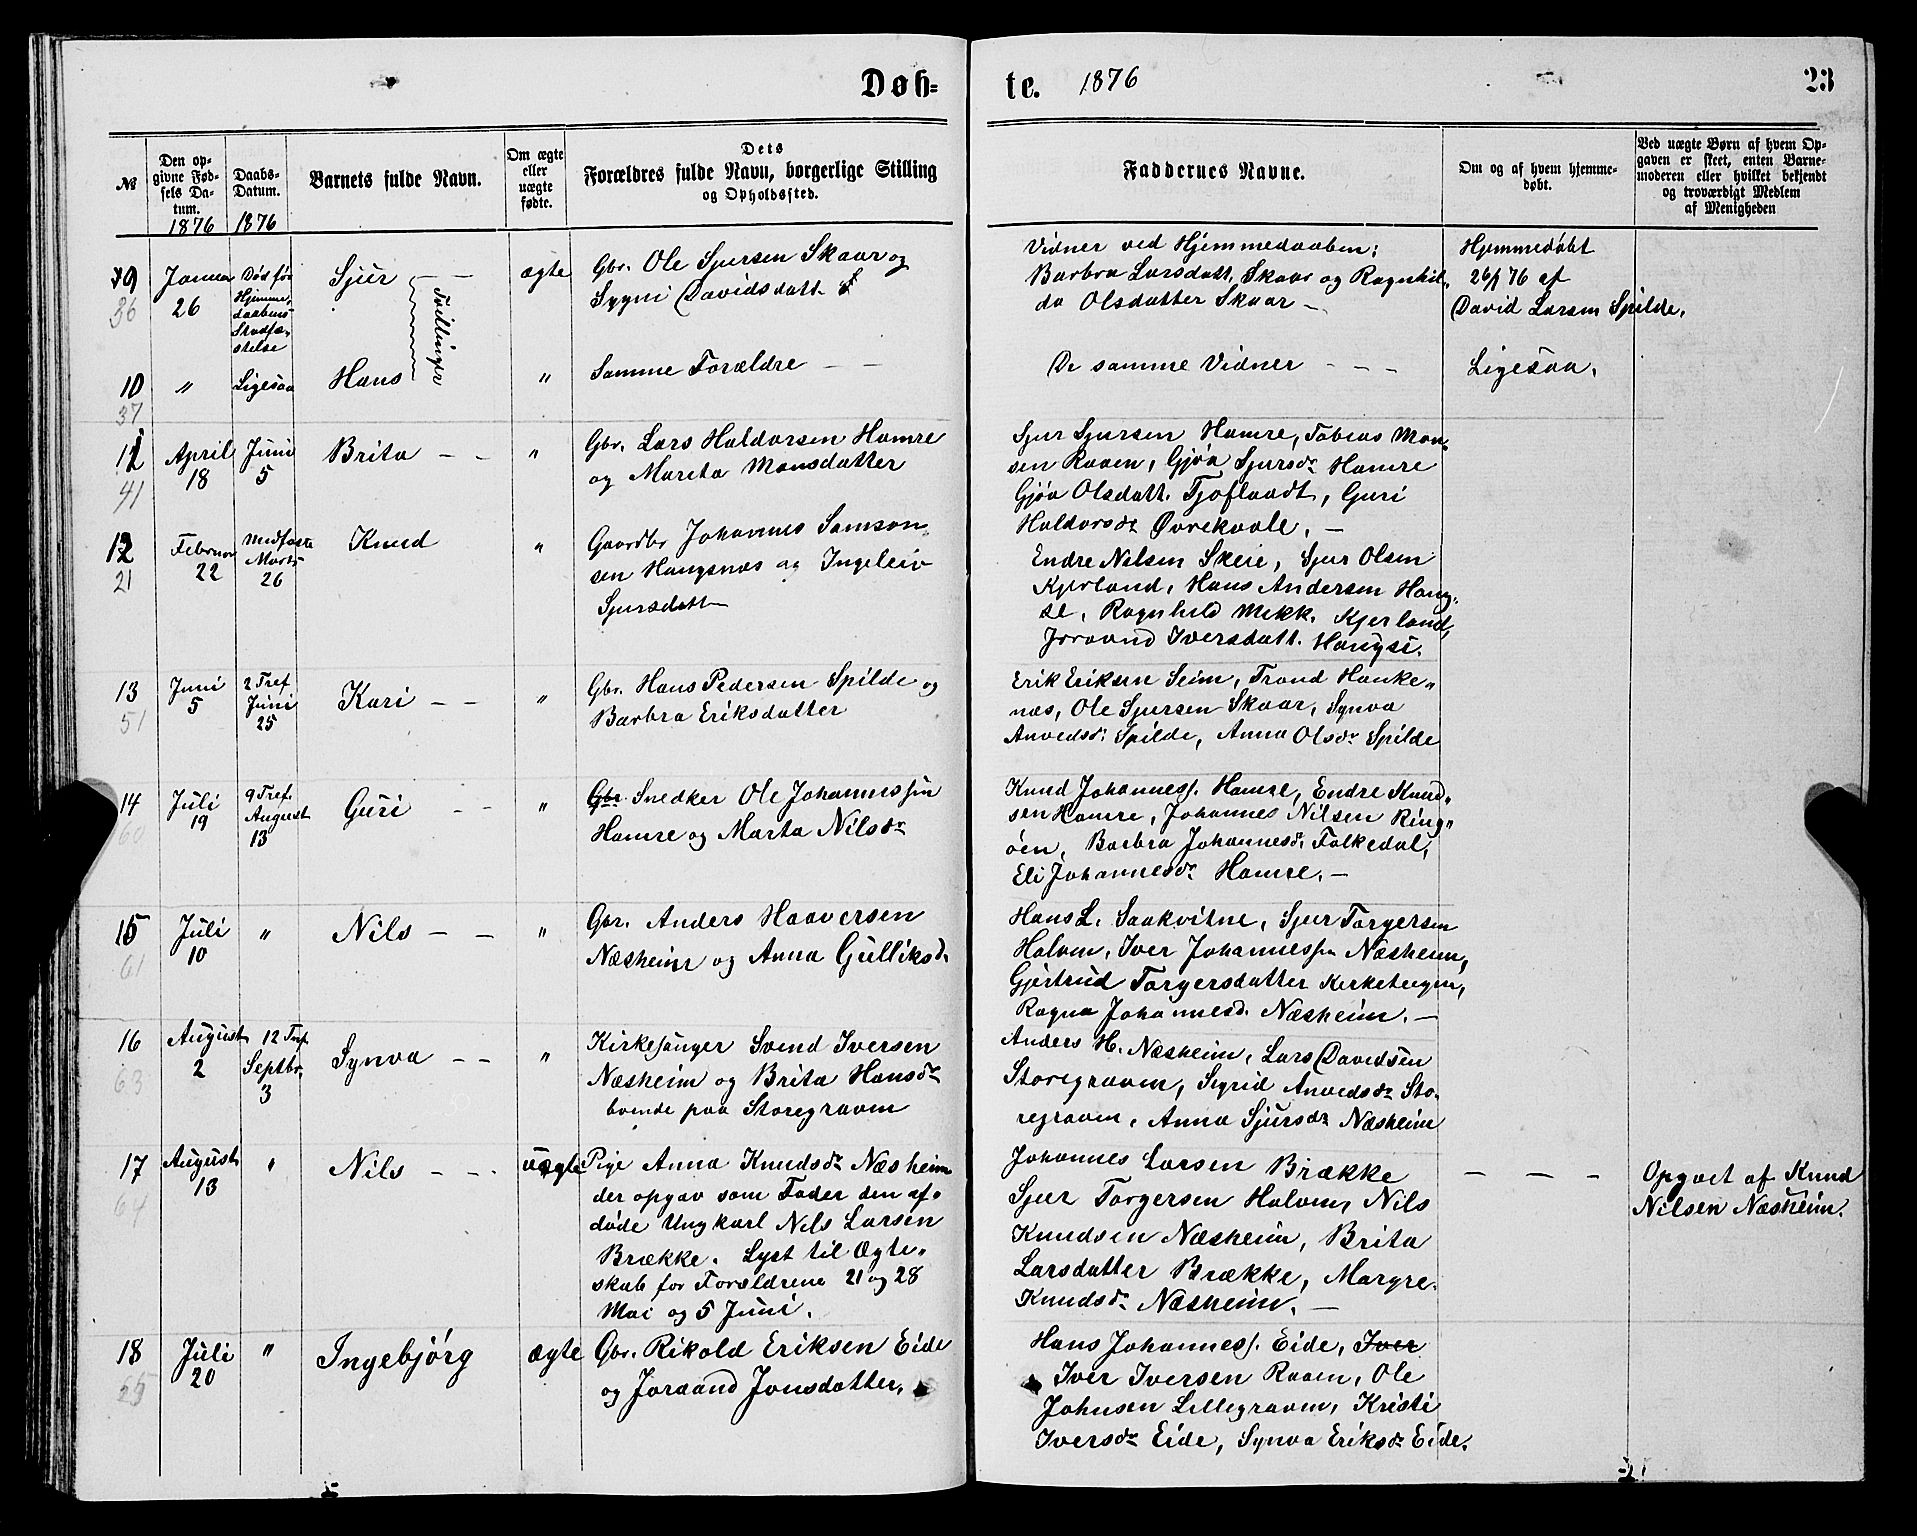 Døb=
te. 1876
23
№
Den op-
givne Fød-
sels Da-
tum.
1876
Daabs-
Datum.
1876
Barnets fulde Navn.
Om ægte
eller
uægte
fødte.
Dets
Forældres fulde Navn, borgerlige Stilling
og Opholdssted.
Faddernes Navne.
Om og af hvem hjemme-
døbt.
Ved uægte Børn af hvem Op-
gaven er skeet, enten Barne-
moderen eller hvilket bekjendt
og troværdigt Medlem
af Menigheden
9
36
Januar
26
Død før
Hjemme,
daabens
Stadfæ-
stelse
Sjur
Tvillinger
ægte
Gbr. Ole Sjursen Skaar og
Sygni Davidsdatt.
Vidner ved Hjemmedaaben:
Barbra Larsdatt, Skaar og Ragnhil-
da Olsdatter Skaar —
Hjemmedøbt
26/1 76 af
David Larsen Spilde.
10
37
"
Ligesaa
Hans
"
Samme Forældre — —
De samme Vidner — — —
Ligesaa.
11
41
April
18
Juni
5
Brita — —
"
Gbr. Lars Haldorsen Hamre
og Marita Monsdatter
Sjur Sjursen Hamre, Tobias Mon-
sen Raaen, Gjøa Sjursdr Hamre
Gjøa Olsdatt. Tjoflaadt, Guri
Haldorsdr Øvrekvale. —
12
21
Februar
22
Midfaste
Marts
26
Knud
"
Gaardbr Johannes Samson
sen Hangsnes og Ingeleiv
Sjursdatt
Endre Nilsen Skeie, Sjur Olsen
Kjerland, Hans Andersen Hang-
se, Ragnhild Mikk. Kjerland,
Joraand Iversdatt. Hangse.
13
51
Juni
5
2 Tref
Juni
25
Kari — —
"
Gbr. Hans Pedersen Spilde og
Barbra Eriksdatter
Erik Eriksen Seim, Trond Hanke-
nes, Ole Sjursen Skaar, Synva
Anvedsdr Spilde, Anna Olsdr Spilde
14
60
Juli
19
9 Tref.
August
13
Guri — —
"
Gbr Snedker Ole Johannessen
Hamre og Marta Nilsdr
Knud Johanness. Hamre, Endre Knud-
sen Hamre, Johannes Nilsen Ring-
øen, Barbra Johannesdr Folkedal,
Eli Johannesdr Hamre. —
15
61
Juli
10
"
Nils — —
"
Gbr. Anders Haaversen
Næsheim og Anna Gulliksd.
Hans L. Saakvitne, Sjur Torgersen
Halven, Iver Johannessen Næsheim,
Gjertrud Torgersdatter Kirketeigen,
Ragna Johannesd. Næsheim. —
16
63
August
2
12 Tref
Septbr.
3
Synva — —
"
Kirkesanger Svend Iversen
Næsheim og Brita Hansdr
boende paa Storegraven
Anders H. Næsheim, Lars Davidsen
Storegraven, Sigrid Anvedsdr Sto-
regraven, Anna Sjursdr Næsheim
17
64
August
13
"
Nils — — -
uægte
Pige Anna Knudsdr Næsheim
der opgav som Fader den af-
døde Ungkarl Nils Larsen
Brække. Lyst til Ægte-
skab for Forældrene 21 og 28
Mai og 5 Juni.
Johannes Larsen Brække
Sjur Torgersen Halven, Nils
Knudsen Næsheim, Brita
Larsdatter Brække, Margre.
Knudsdr Næsheim. —
— — —
Opgvet af Knud
Nilsen Næsheim.
18
65
Juli
20
"
Ingebjørg
ægte
Gbr. Rikold Eriksen Eide
og Joraand Jonsdatter.
Hans Johanness. Eide, Iver
Iver Iversen Raaen, Ole
Johnsen Lillegraven, Kristi
Iversdr Eide, Synva Eriksdr Eide.